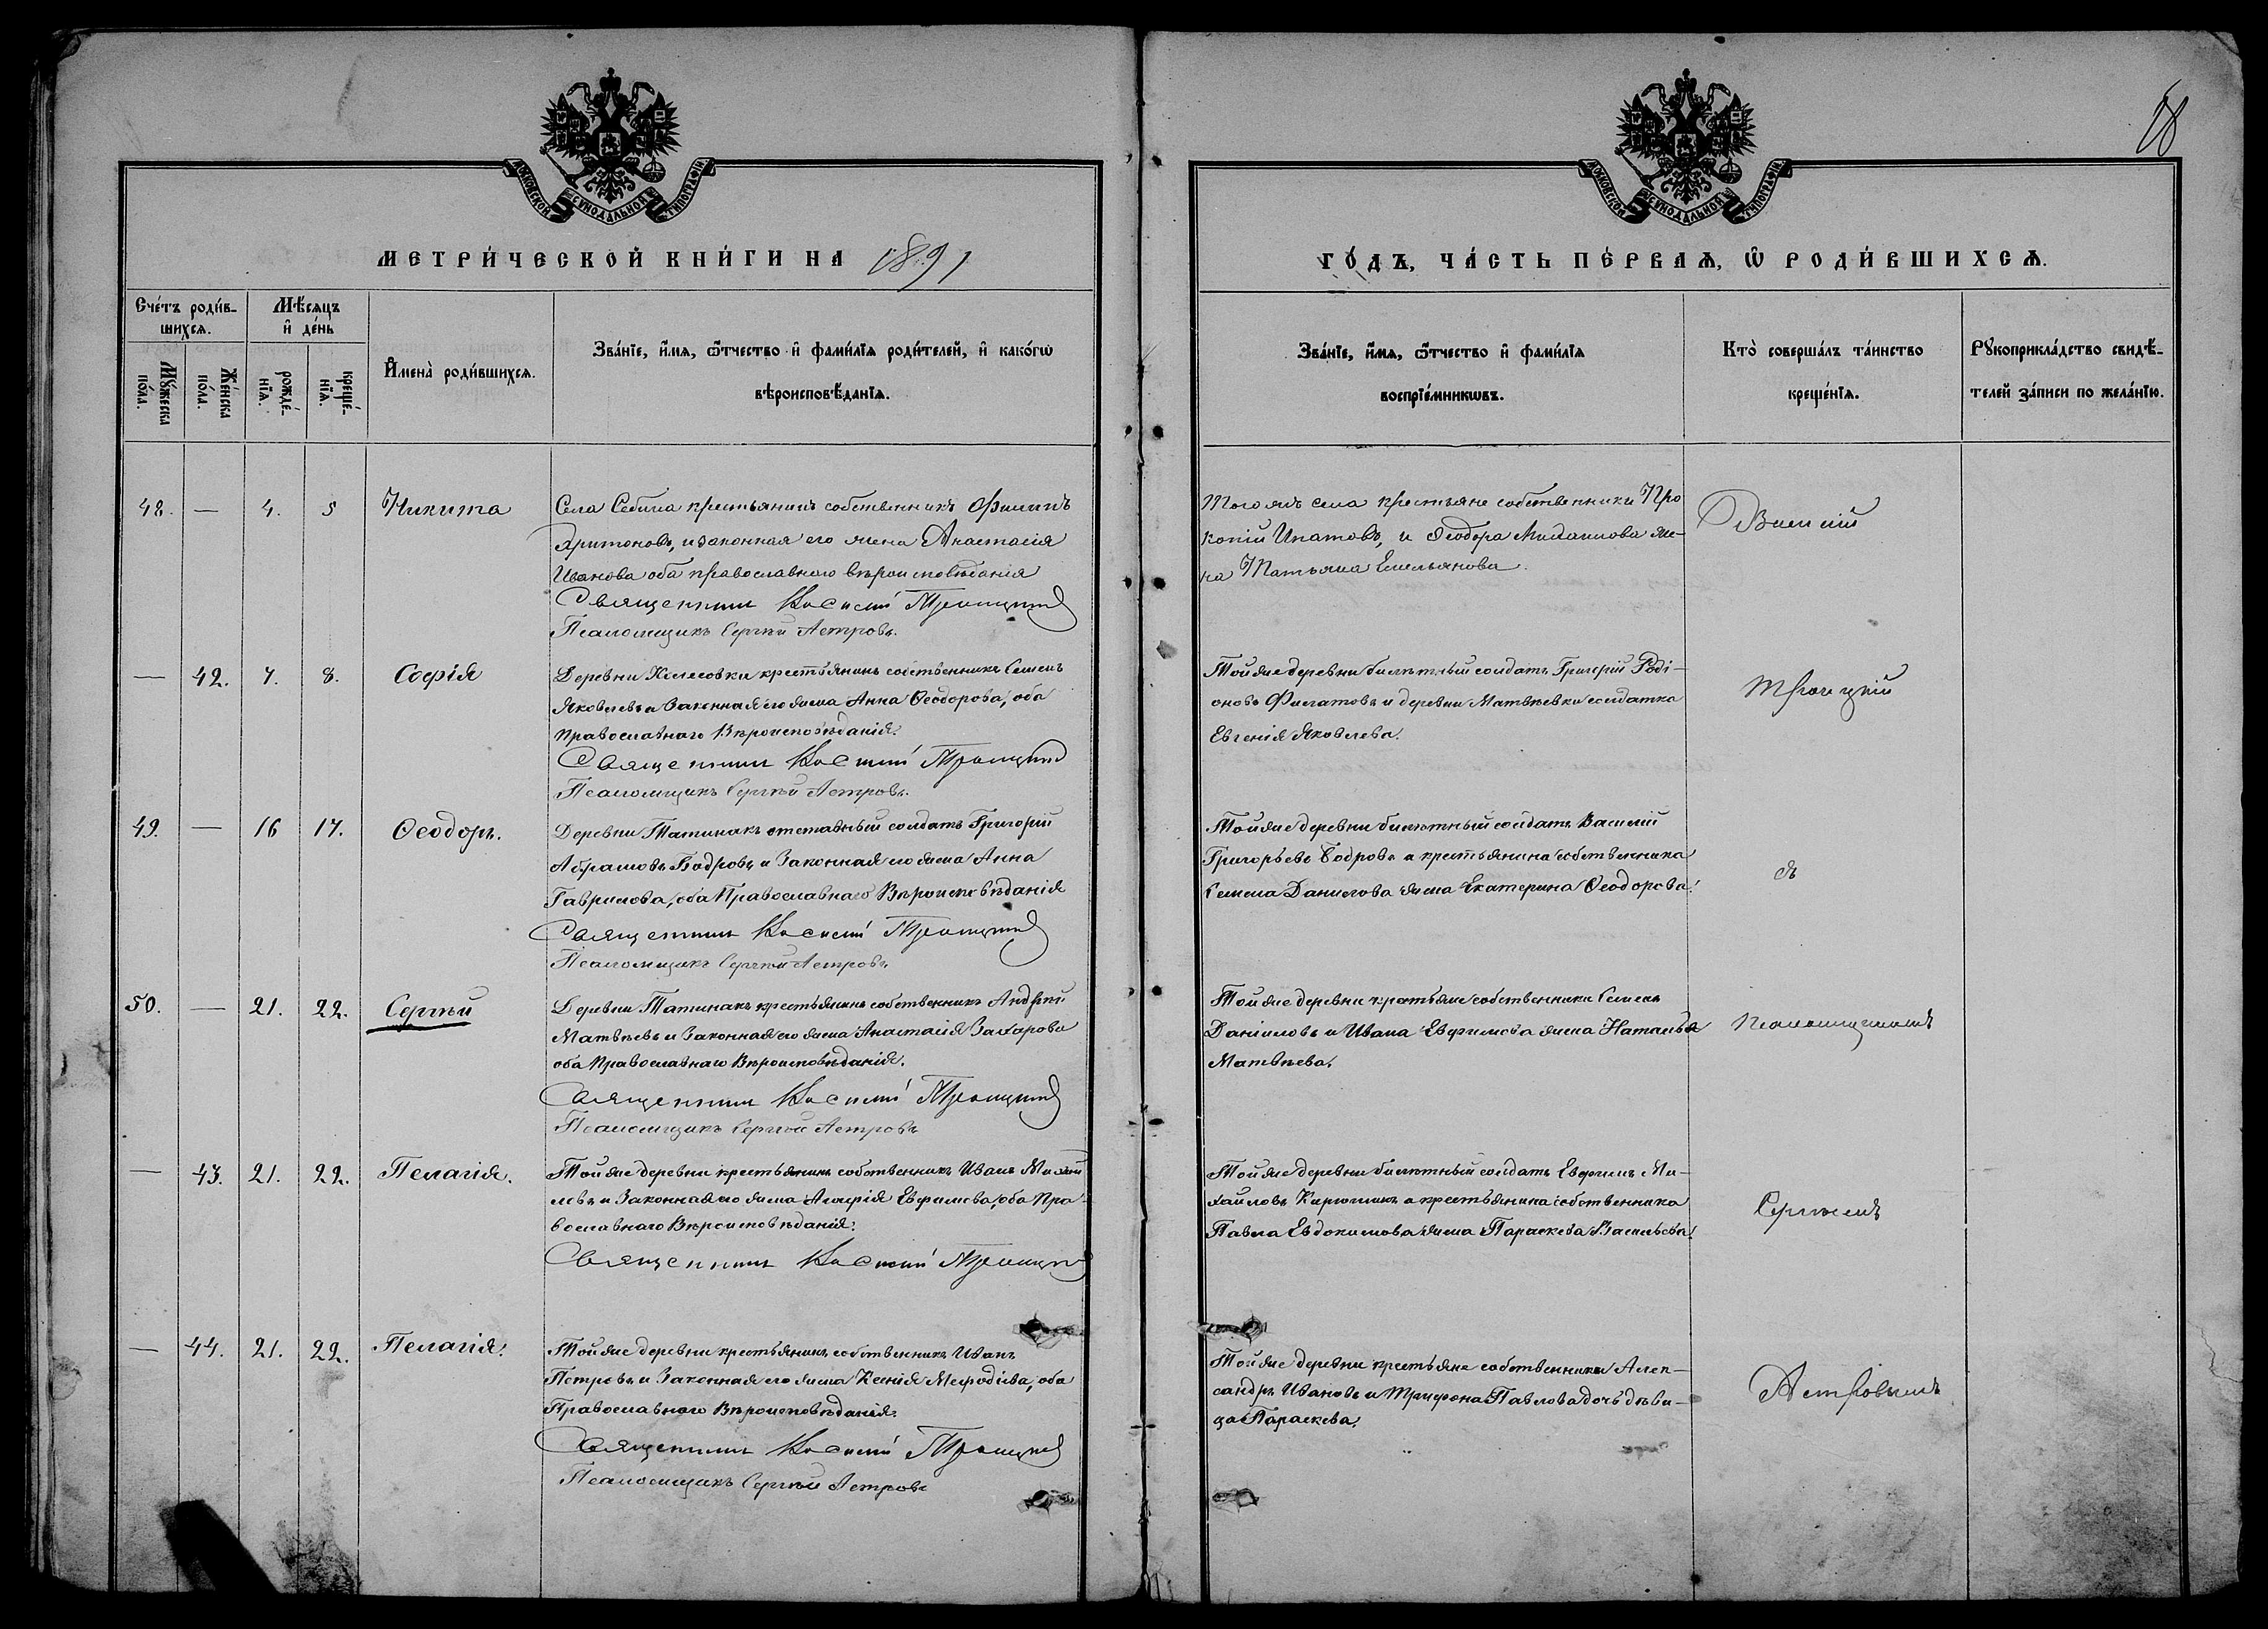 18
МОСКОВСКОЙ СѴНОДАЛЬНОЙ ТИПОГРАФІИ
МОСКОВСКОЙ СѴНОДАЛЬНОЙ ТИПОГРАФІИ
МЕТРИ́ЧЕСКОЙ КНИ́ГИ НА 1891
ГО́ДЪ, ЧА́СТЬ ПЕ́РВАѦ, Ѽ РОДИ́ВШИХСѦ.
Сче́тъ роди́в-
шихсѧ.
Мѣ́сѧцъ
и҆ де́нь
Мꙋ́жеска
по́ла.
Же́нска
по́ла.
рожде́-
нїѧ.
креще́-
нїѧ.
И҆мена̀ роди́вшихсѧ.
Зва́нїе, и҆́мѧ, ѻ҆́тчество и҆ фами́лїѧ роди́телей, и҆ како́гѡ
вѣроисповѣ́данїѧ.
Зва́нїе, и҆́мѧ, ѻ҆́тчество и҆ фами́лїѧ
воспрїе́мникѡвъ.
Кто̀ соверша́лъ та́инство
креще́нїѧ.
Рꙋкоприкла́дство свидѣ́-
телей за́писи по жела́нїю.
48. — 4. 5 Никита
Села Себина крестьянинъ собственникъ Филипъ
Харитоновъ, и законная его жена Анастасія
Иванова оба православнаго вѣроисповѣданія
Священникъ Василій Троицкій
Псаломщикъ Сергѣй Астровъ.
Тогожъ села крестьяне собственники Про
копій Ипатовъ, и Ѳеодора Михаилова же-
на Татьяна Емельянова.
Василій
— 42. 7. 8. Софія
Деревни Колесовки крестьянинъ собственникъ Семенъ
Яковлевъ и Законная его жена Анна Ѳеодорова, оба
Православнаго Вѣроисповѣданія.
Священникъ Василій Троицкій
Псаломщикъ Сергѣй Астровъ.
Той же деревни билетный солдатъ Григорій Роді-
оновъ Филатовъ и деревни Матвѣевки солдатка
Евгенія Яковлева.
Троицкій
49. — 16 17. Ѳеодоръ.
Деревни Татинокъ отставный солдатъ Григорій
Абрамовъ Бодровъ и Законная его жена Анна
Гаврилова, оба Православнаго Вѣроисповѣданія
Священникъ Василій Троицкій
Псаломщикъ Сергѣй Астровъ.
Той же деревни билетный солдатъ Василій
Григорьевъ Бодровъ и крестьянина собственника
Семена Данилова жена Екатерина Ѳеодорова.
съ
50. — 21. 22. Сергѣй
Деревни Татинокъ крестьянинъ собственникъ Андрей
Матвѣевъ и Законная его жена Анастасія Захарова
оба Православнаго Вѣроисповѣданія.
Священникъ Василій Троицкій
Псаломщикъ Сергѣй Астровъ
Той же деревни крестьяне собственники Семенъ
Даніиловъ и Ивана Евфимова жена Наталья
Матвѣева.
Псаломщикомъ
— 43. 21. 22. Пелагія.
Той же деревни крестьянинъ собственникъ Иванъ Михай
ловъ и Законная его жена Агафія Евфимова, оба Пра-
вославнаго Вѣроисповѣданія.
Священникъ Василій Троицкій
Той же деревни билетный солдатъ Евфимъ Ми-
хайловъ и крестьянина собственника
Павла Евдокимова жена Параскева Васильева.
Сергѣемъ
— 44. 21. 22. Пелагія.
Той же деревни крестьянинъ собственникъ Иванъ
Петровъ и Законная его жена Ксенія Меѳодіева, оба
Православнаго Вѣроисповѣданія.
Священникъ Василій Троицкій
Псаломщикъ Сергѣй Астровъ
Той же деревни крестьяне собственники Алек-
сандръ Ивановъ и Трифона Павлова дочь дѣви-
ца Параскева.
Астровымъ